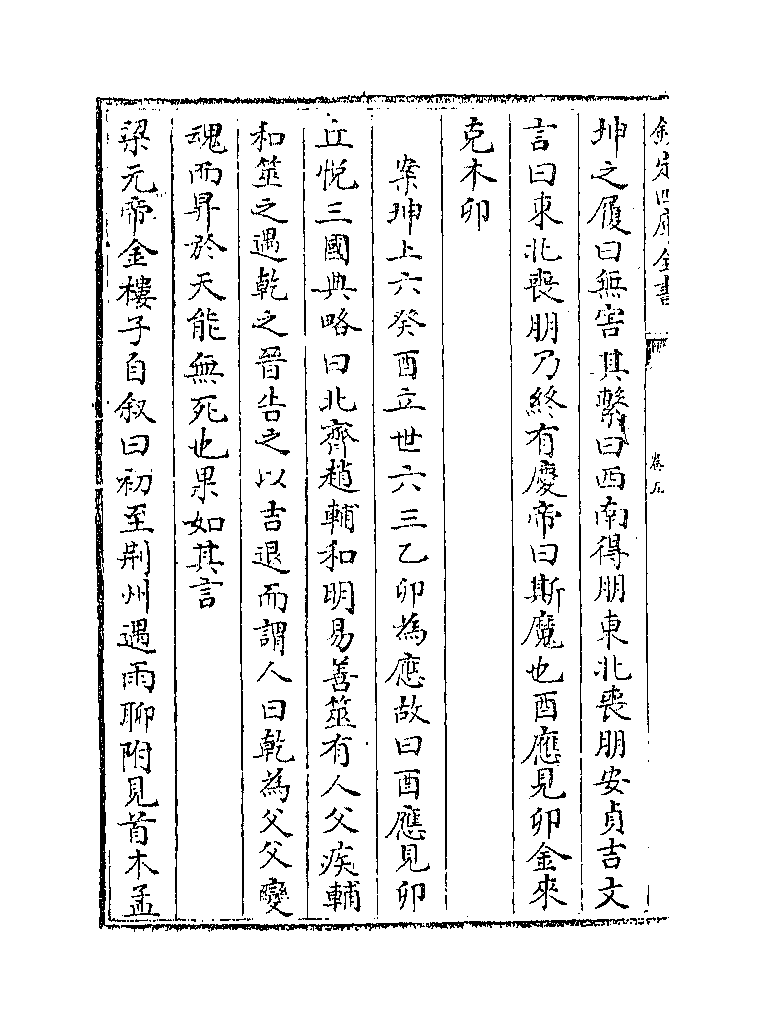 欽定四庫全書
卷五
坤之履曰無害其繫曰西南得朋東北喪朋安貞吉文
言曰東北喪朋乃終有慶帝曰斯魔也酉應見卯金來
克木卯
案坤上六癸酉立世六三乙卯為應故曰酉應見卯
丘悅三國典略曰北齊趙輔和明易善筮有人父疾輔
和筮之遇乾之晉告之以吉退而謂人曰乾為父父變
魂而昇於天能無死也果如其言
梁元帝金樓子自叙曰初至荆州遇雨聊附見首木孟